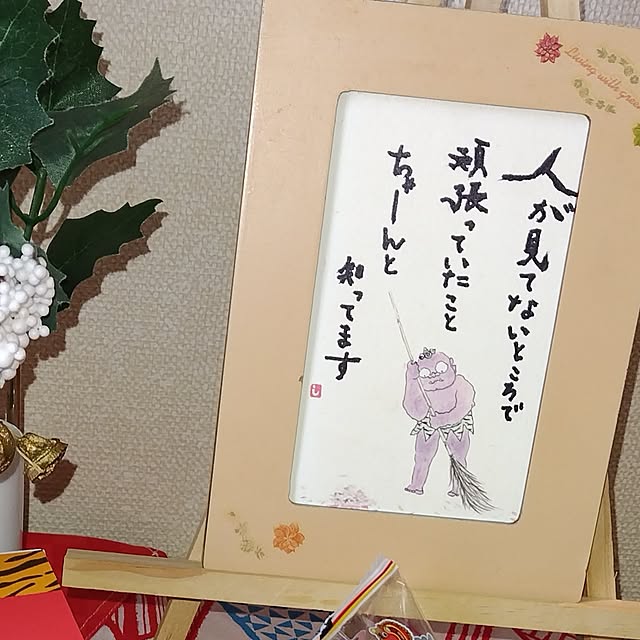 人が見てないところで
頑張っていたこと
ちゃーんと
知ってます
Living with